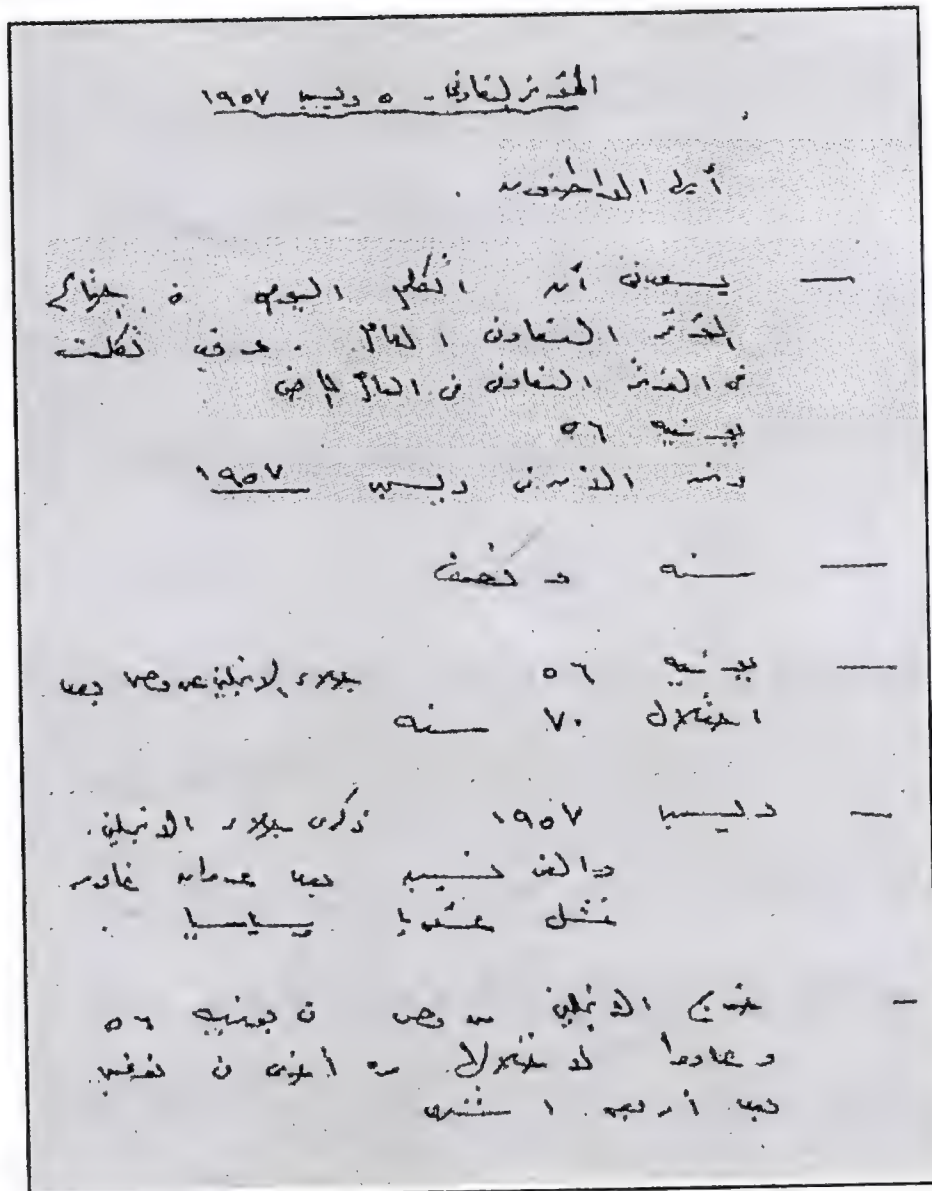 المؤتمر التعاونى - ٥ ديسمبر ١٩٥٧
أيها المواطنون .
— يسعدنى أن أتكلم اليوم فى اجتماع
المؤتمر التعاونى العام . وقد تكلمت
فى المؤتمر التعاونى فى العام الماضى
يونيه ٥٦
ونحن الآن فى ديسمبر ١٩٥٧
— سنه ونصف
— يونيه ٥٦ جلاء الانجليز عن مصر بعد
احتلال ٧٠ سنه
— ديسمبر ١٩٥٧ ذكرى جلاء الانجليز .
والفرنسيين بعد عدوان غادر
فشل عسكريا وسياسيا .
— خرج الانجليز من مصر فى يونيه ٥٦
وعادوا للاحتلال مره أخرى فى نوفمبر
بعد أربعة أشهر